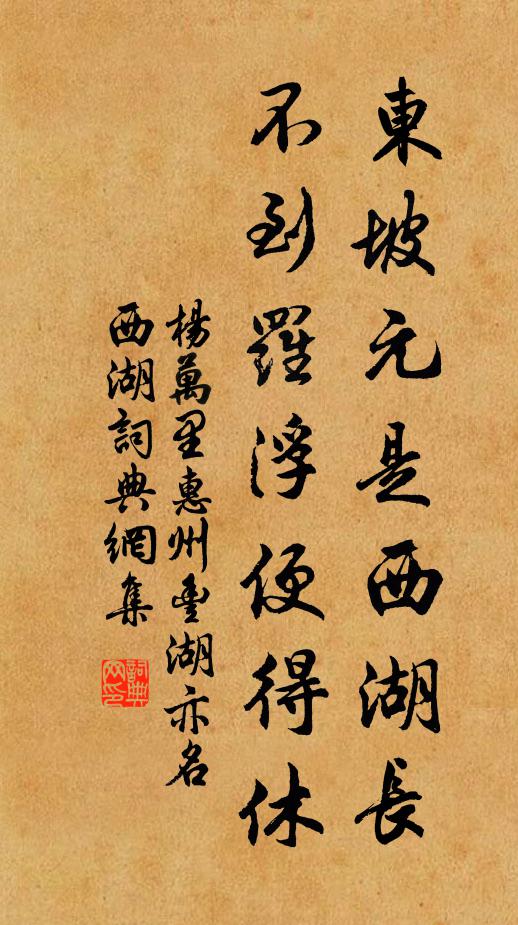 東坡元是西湖長
不到羅浮便得休
楊萬里惠州豊湖亦名
西湖詞典網集
詞典
网印